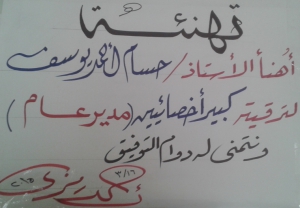 تهنئة
أهنأ الأستاذ/ حسام أحمد يوسف
لترقيته كبير أخصائيين (مدير عام)
ونتمنى له دوام التوفيق
٣/١٦